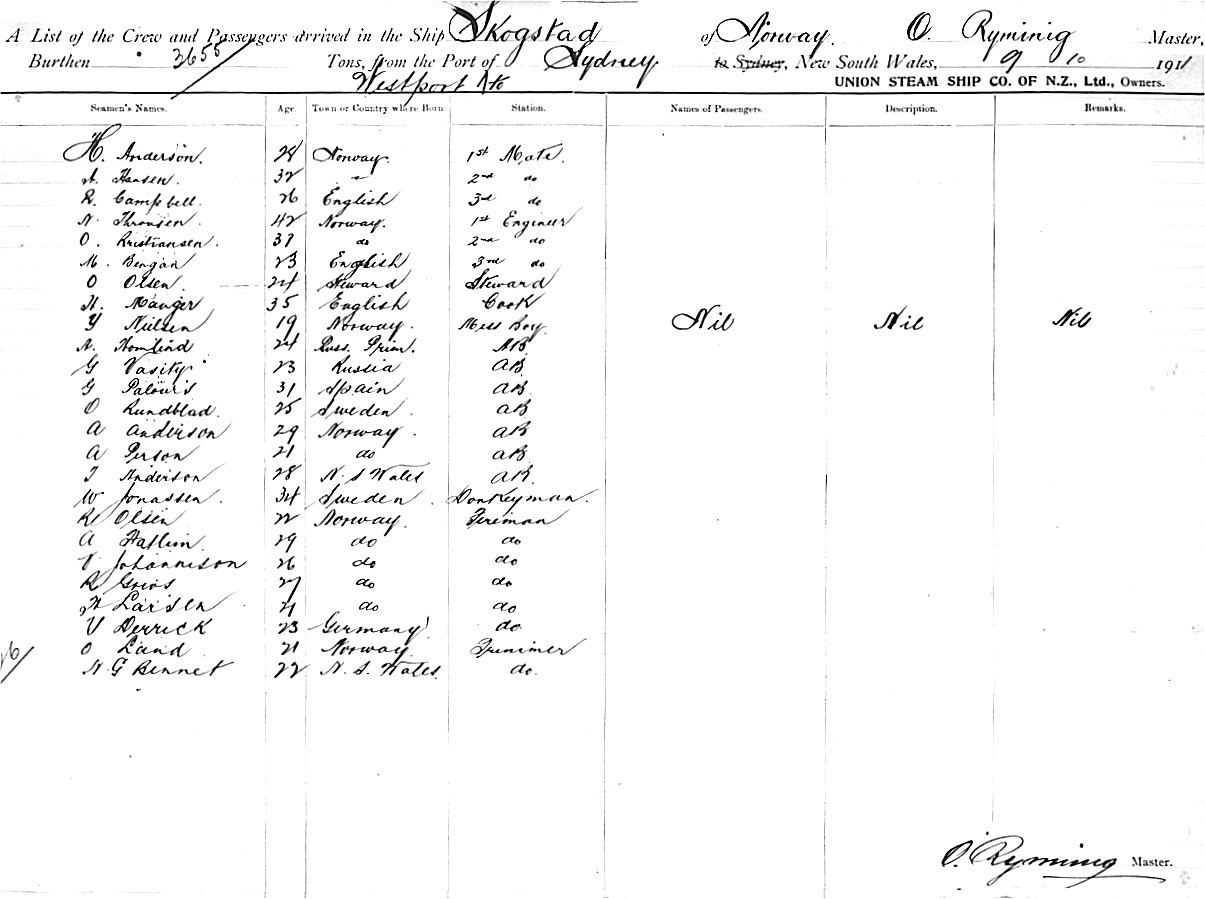 A List of the Crew and Passengers arrived in the Ship Skogstad of Norway. O. Ryming Master,
Burthen 3655 Tons, from the Port of Sydney to Sydney, New South Wales, 9 10 1911
Westport
UNION STEAM SHIP CO. OF N.Z., Ltd., Owners.
Seamen's Names. Age. Town or Country where Born Station. Names of Passengers. Description. Remarks.
H. Anderson. 28 Norway. 1st Mate.
A. Hansen. 32 " 2nd do
R. Campbell. 26 English 3rd do
N. Thronsen. 42 Norway. 1st Engineer
O. Kristiansen. 37 do 2nd do
M. Bengan 23 English 3rd do
O Olsen. 24 Steward Steward
H. Manger 35 English Cook
Y Nielsen 19 Norway. Mess Boy Nil Nil Nil
A. 24 Russ. AB
G Vasity 23 Russia AB
G 31 Spain AB
O Rundblad. 25 Sweden. AB
A Anderson 29 Norway. AB
A Person 21 do AB
T Anderson 28 N. S Wales AB.
W Jonassen. 34 Sweden. Donkeyman.
R Olsen 22 Norway. Fireman
A 29 do do
Johannison 26 do do
R 27 do do
H Larsen 21 do do
V Derrick 23 Germany do
O Land 21 Norway. Trimmer
26/
N. G Bennet 22 N. S. Wales. do.
O. Ryming Master.